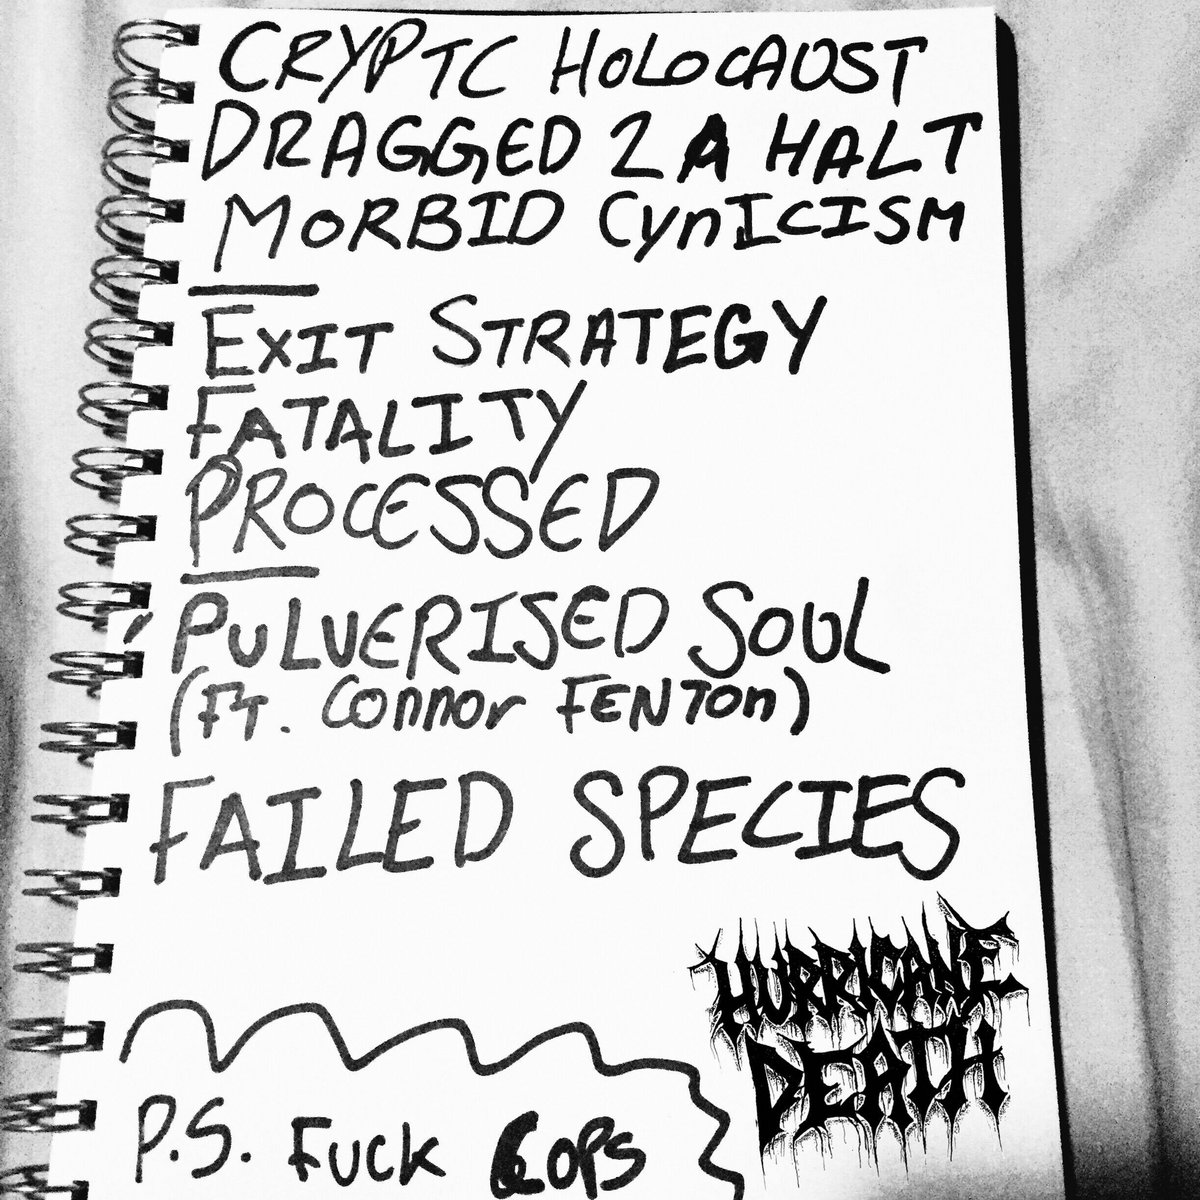 CRYPTC HOLOCAUST
DRAGGED 2 A HALT
MORBID CynICISM
EXIT STRATEGY
FATALITY
PROCESSED
PULVERISED SOUL
(FT. Connor FENTON)
FAILED SPECIES
HURRICANE
DEATH
P.S. FUCK COPS